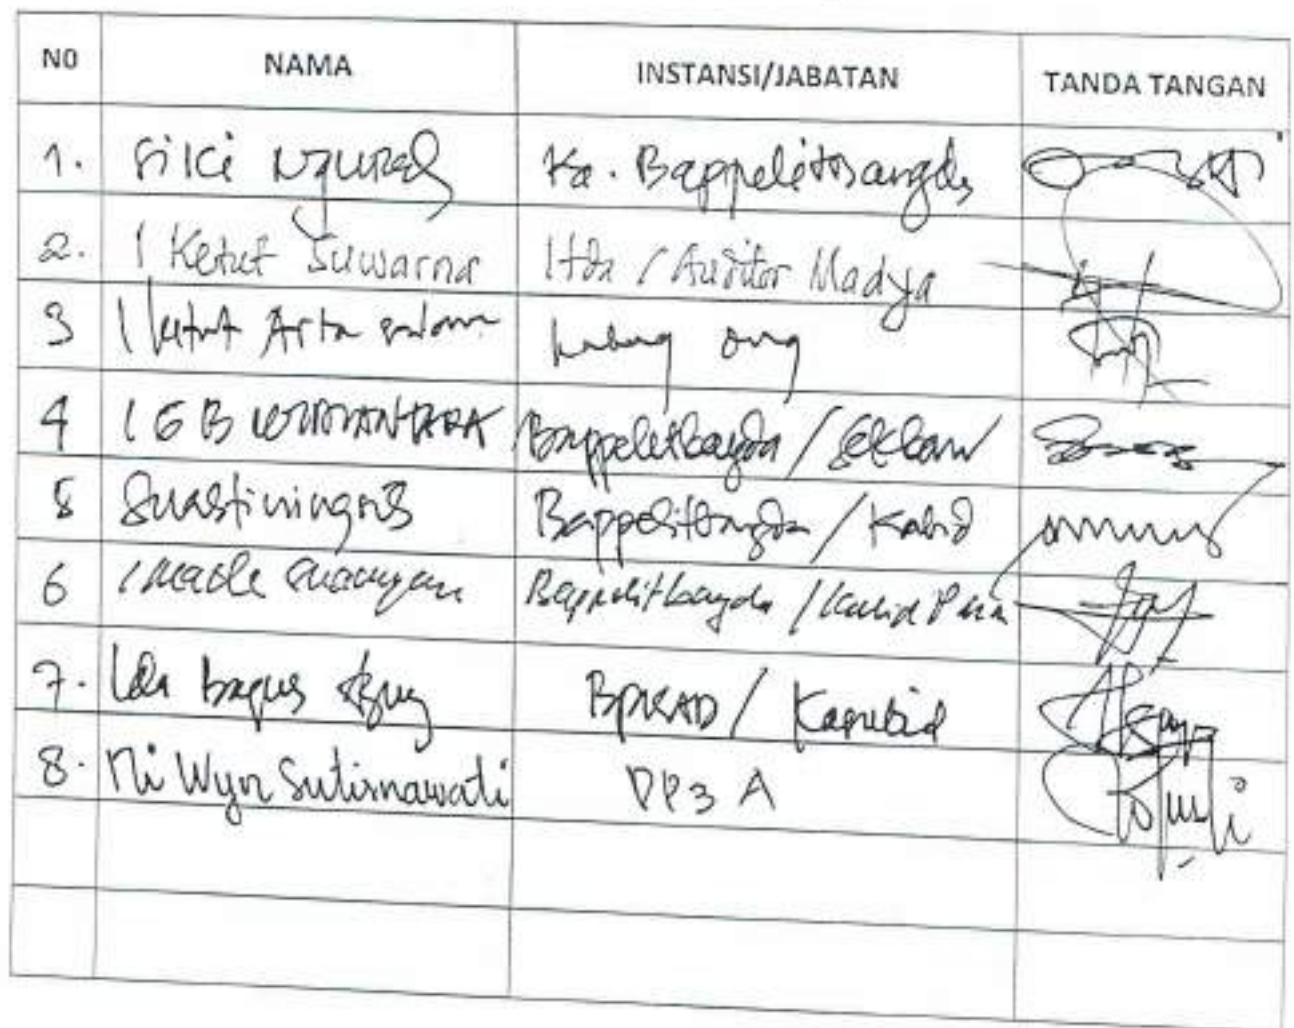 NO NAMA INSTANSI/JABATAN TANDA TANGAN
1. Ngurah Ka. Bappelitbangda
2. I Ketut Suwarna Itda / Auditor Madya
3 I Ketut Arta
4 I G B WIRAYANTARA Bappelitbangda / Sekban
5 Suastiningsih Bappelitbangda / Kabid
6 I Made Bappelitbangda / Kabid
7. Ida Bagus Agung BPKAD / Kasubid
8. Ni Wyn Sutisnawati DP3 A